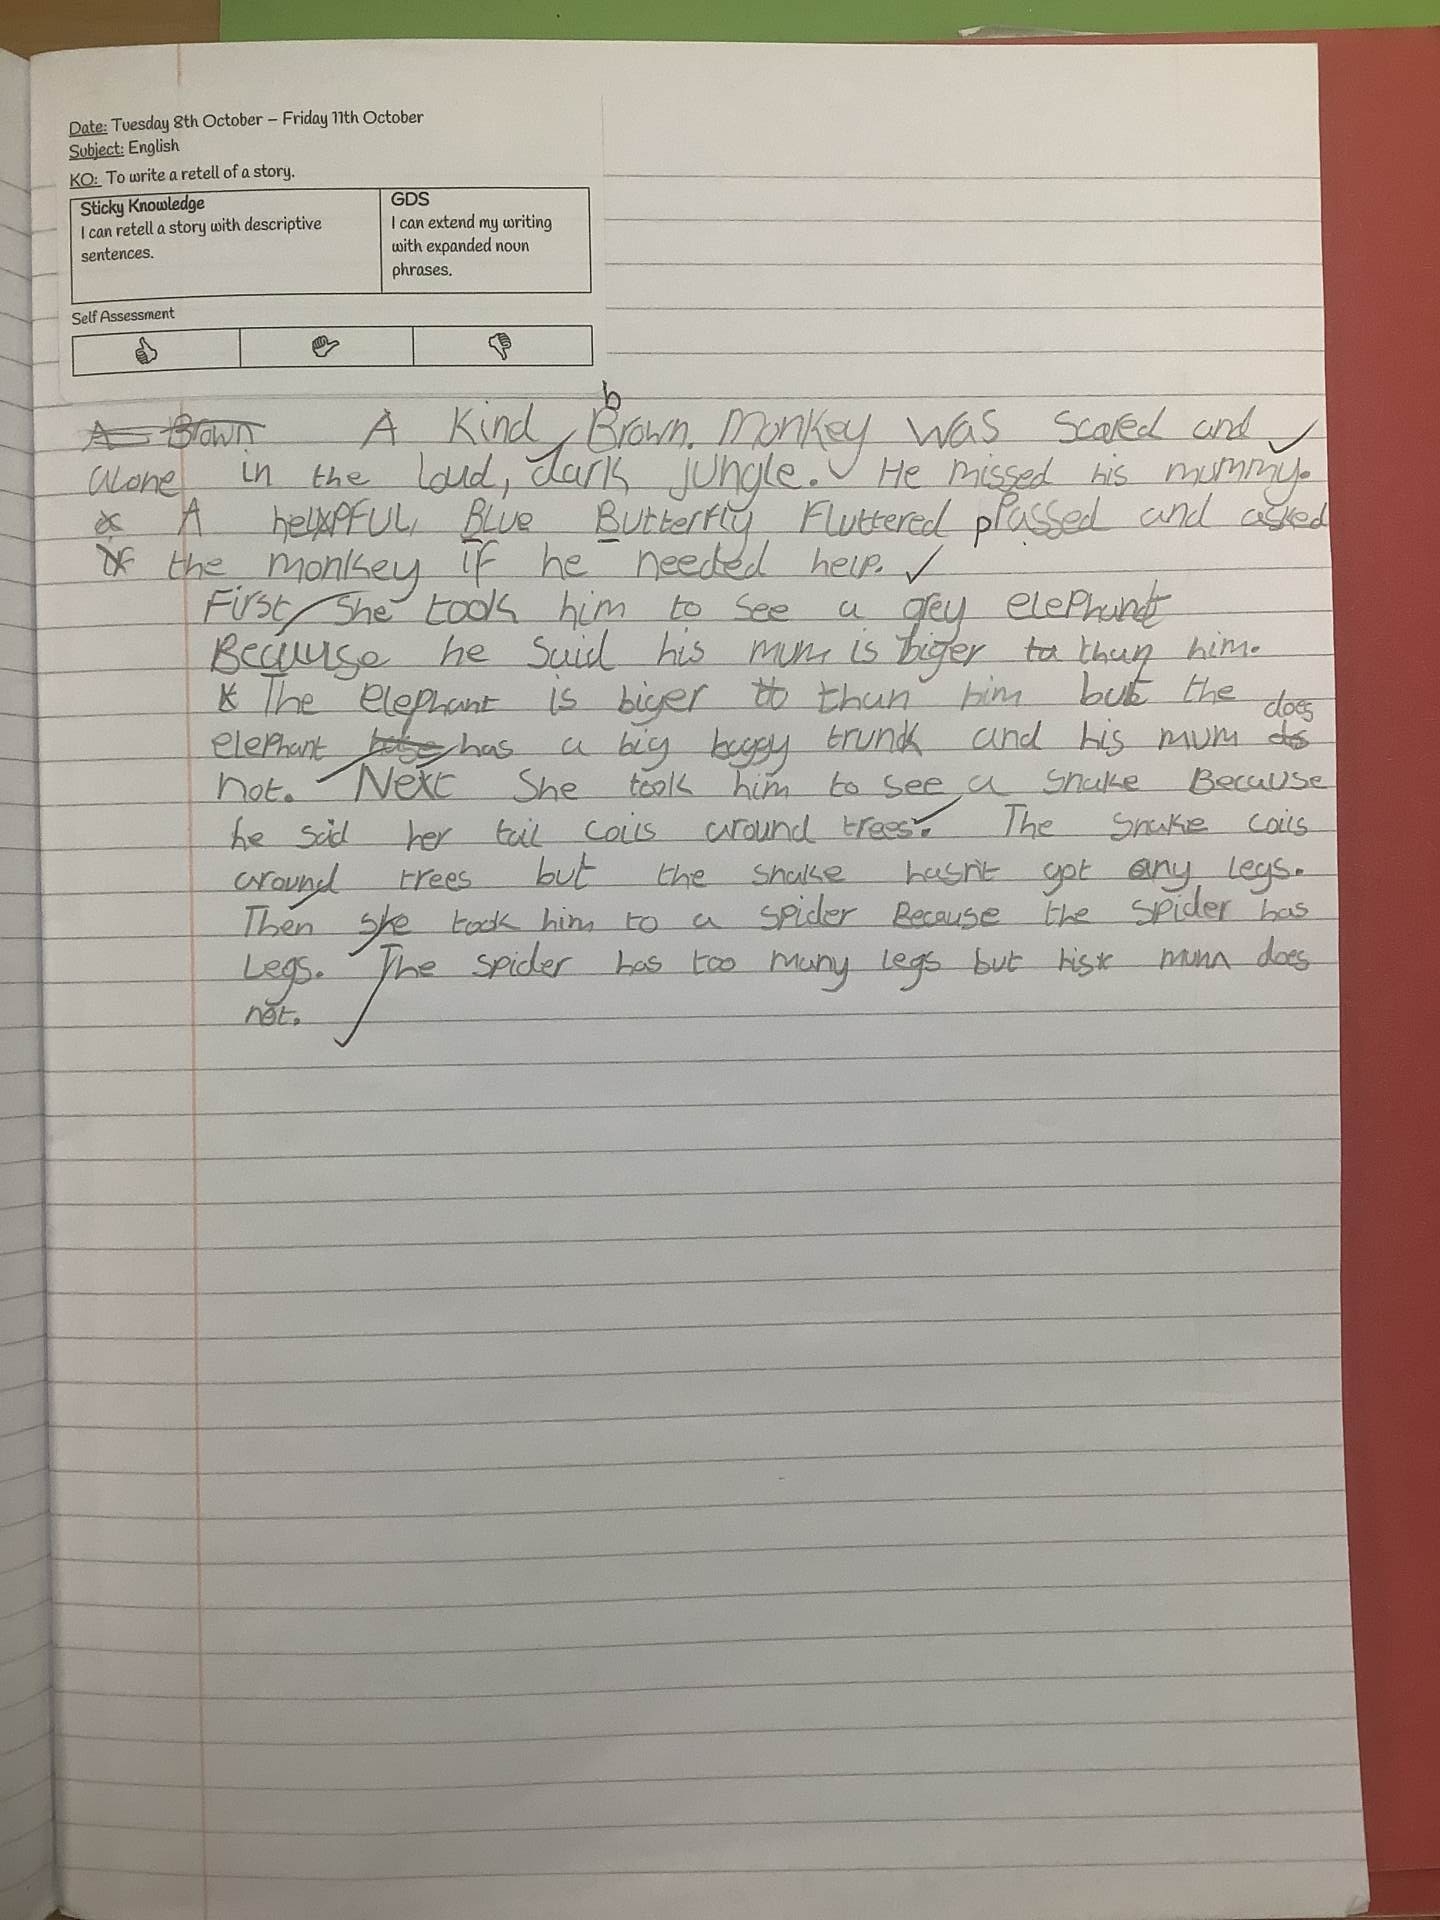 Date: Tuesday 8th October – Friday 11th October
Subject: English
KO: To write a retell of a story.
Sticky Knowledge
I can retell a story with descriptive
sentences.
GDS
I can extend my writing
with expanded noun
phrases.
Self Assessment
A Brown A Kind, Brown. Monkey was scared and
alone in the loud, dark jungle. He missed his mummy.
A helpful, Blue Butterfly Fluttered passed and asked
the monkey if he needed help.
First, She took him to see a grey elephant
Because he said his mum is biger than him.
The elephant is biger than him but the
elephant has a big baggy trunk and his mum does
not. Next She took him to see a snake Because
he said her tail coils around trees. The snake coils
around trees but the snake hasn't got any legs.
Then she took him to a spider Because the spider has
Legs. The spider has too many legs but his mum does
not.